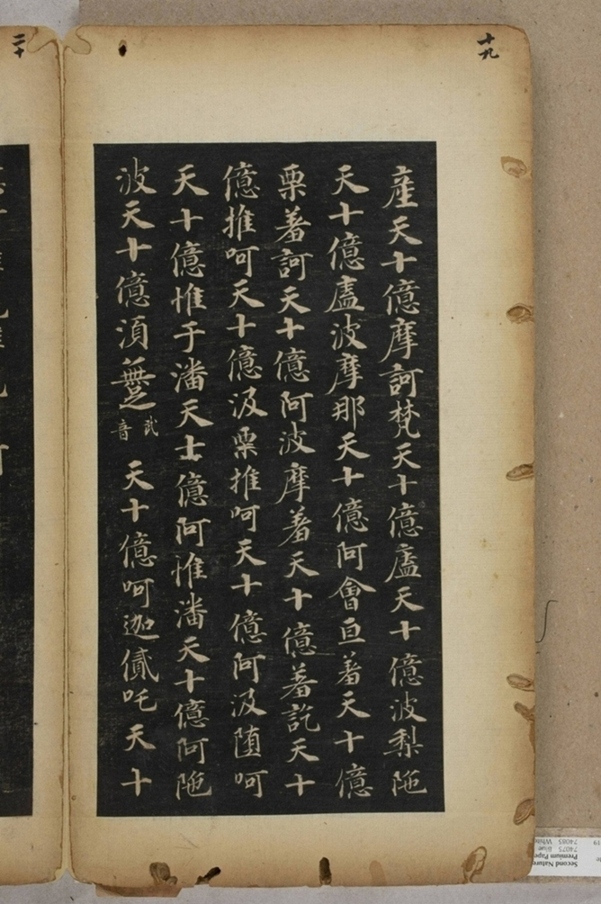 十九
産天十億摩訶梵天十億廬天十億波梨陁
天十億廬波摩那天十億阿會亘著天十億
栗著訶天十億阿波摩著天十億著訖天十
億推呵天十億汲栗推呵天十億阿汲墮呵
天十億惟于潘天士億阿惟潘天十億阿陁
波天十億須𨇤音武天十億呵迦貳吒天十
二十